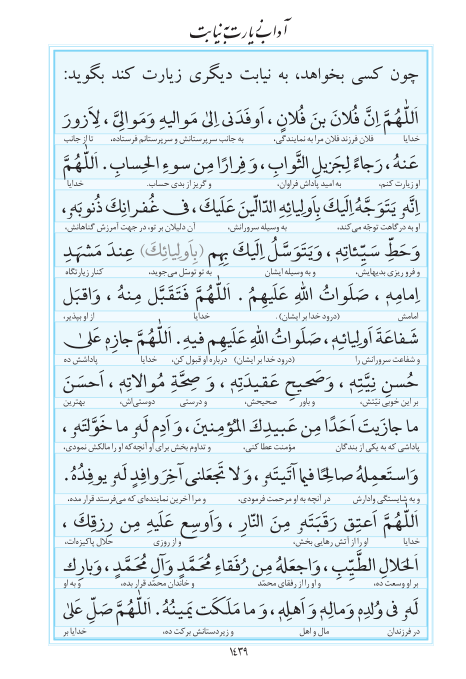 آداب زیارت به نیابت
چون کسی بخواهد، به نیابت دیگری زیارت کند بگوید:
اَللّٰهُمَّ اِنَّ فُلانَ بنَ فُلانٍ ، اَوفَدَنى اِلىٰ مَواليهِ وَمَوالِىَّ ، لِاَزورَ
خدایا فلان فرزند فلان مرا به نمایندگی، به جانب سرپرستانش و سرپرستانم فرستاده، تا از جانب
عَنهُ ، رَجاءً لِجَزيلِ الثَّوابِ ، وَ فِرارًا مِن سوءِ الحِسابِ. اَللّٰهُمَّ
او زیارت کنم، به امید پاداش فراوان، و گریز از بدی حساب. خدایا
اِنَّهُ يَتَوَجَّهُ اِلَيكَ بِاَولِيائِهِ الدّالّينَ عَلَيكَ ، فى غُفرانِكَ ذُنوبَهُ ،
او به درگاهت توجّه می‌کند، به وسیله سرورانش، آن دلیلان بر تو، در جهت آمرزش گناهانش،
وَ حَطِّ سَيِّئاتِهِ ، وَيَتَوَسَّلُ اِلَيكَ بِهِم (بِاَولِيائِكَ) عِندَ مَشهَدِ
و فرو ریزی بدیهایش، و به وسیله ایشان به تو توسّل می‌جوید، کنار زیارتگاه
اِمامِهِ ، صَلَواتُ اللهِ عَلَيهِمُ . اَللّٰهُمَّ فَتَقَبَّل مِنهُ ، وَاقبَل
امامش (درود خدا بر ایشان). خدایا از او بپذیر،
شَفاعَةَ اَولِيائِهِ ، صَلَواتُ اللهِ عَلَيهِم فيهِ. اَللّٰهُمَّ جازِهِ عَلىٰ
و شفاعت سرورانش را (درود خدا بر ایشان) درباره او قبول کن، خدایا پاداشش ده
حُسنِ نِيَّتِهِ ، وَصَحيحِ عَقيدَتِهِ ، وَ صِحَّةِ مُوالاتِهِ ، اَحسَنَ
بر این خوبی نیّتش، و باور صحیحش، و درستی دوستی‌اش، بهترین
ما جازَيتَ اَحَدًا مِن عَبيدِكَ المُؤمِنينَ، وَ اَدِم لَهُ ما خَوَّلتَهُ ،
پاداشی که به یکی از بندگان مؤمنت عطا کنی، و تداوم بخش برای او آنچه که او را مالکش نمودی،
وَاستَعمِلهُ صالِحًا فيما آتَيتَهُ ، وَ لا تَجعَلنى آخِرَ وافِدٍ لَهُ يوفِدُهُ.
و به شایستگی وادارش در آنچه به او مرحمت فرمودی، و مرا آخرین نماینده‌ای که می‌فرستد قرار مده،
اَللّٰهُمَّ اَعتِق رَقَبَتَهُ مِنَ النّارِ ، وَاَوسِع عَلَيهِ مِن رِزقِكَ ،
خدایا او را از آتش رهایی بخش، و از روزی حلال پاکیزه‌ات،
اَلحَلالِ الطَّيِّبِ ، وَاجعَلهُ مِن رُفَقاءِ مُحَمَّدٍ وَآلِ مُحَمَّدٍ ، وَبارِك
بر او وسعت ده، و او را از رفقای محمّد و خاندان محمّد قرار بده، و به او
لَهُ فى وُلدِهِ وَمالِهِ وَ اَهلِهِ ، وَ ما مَلَكَت يَمينُهُ. اَللّٰهُمَّ صَلِّ عَلىٰ
در فرزندان مال و اهل و زیردستانش برکت ده، خدایا بر
١٤٣٩